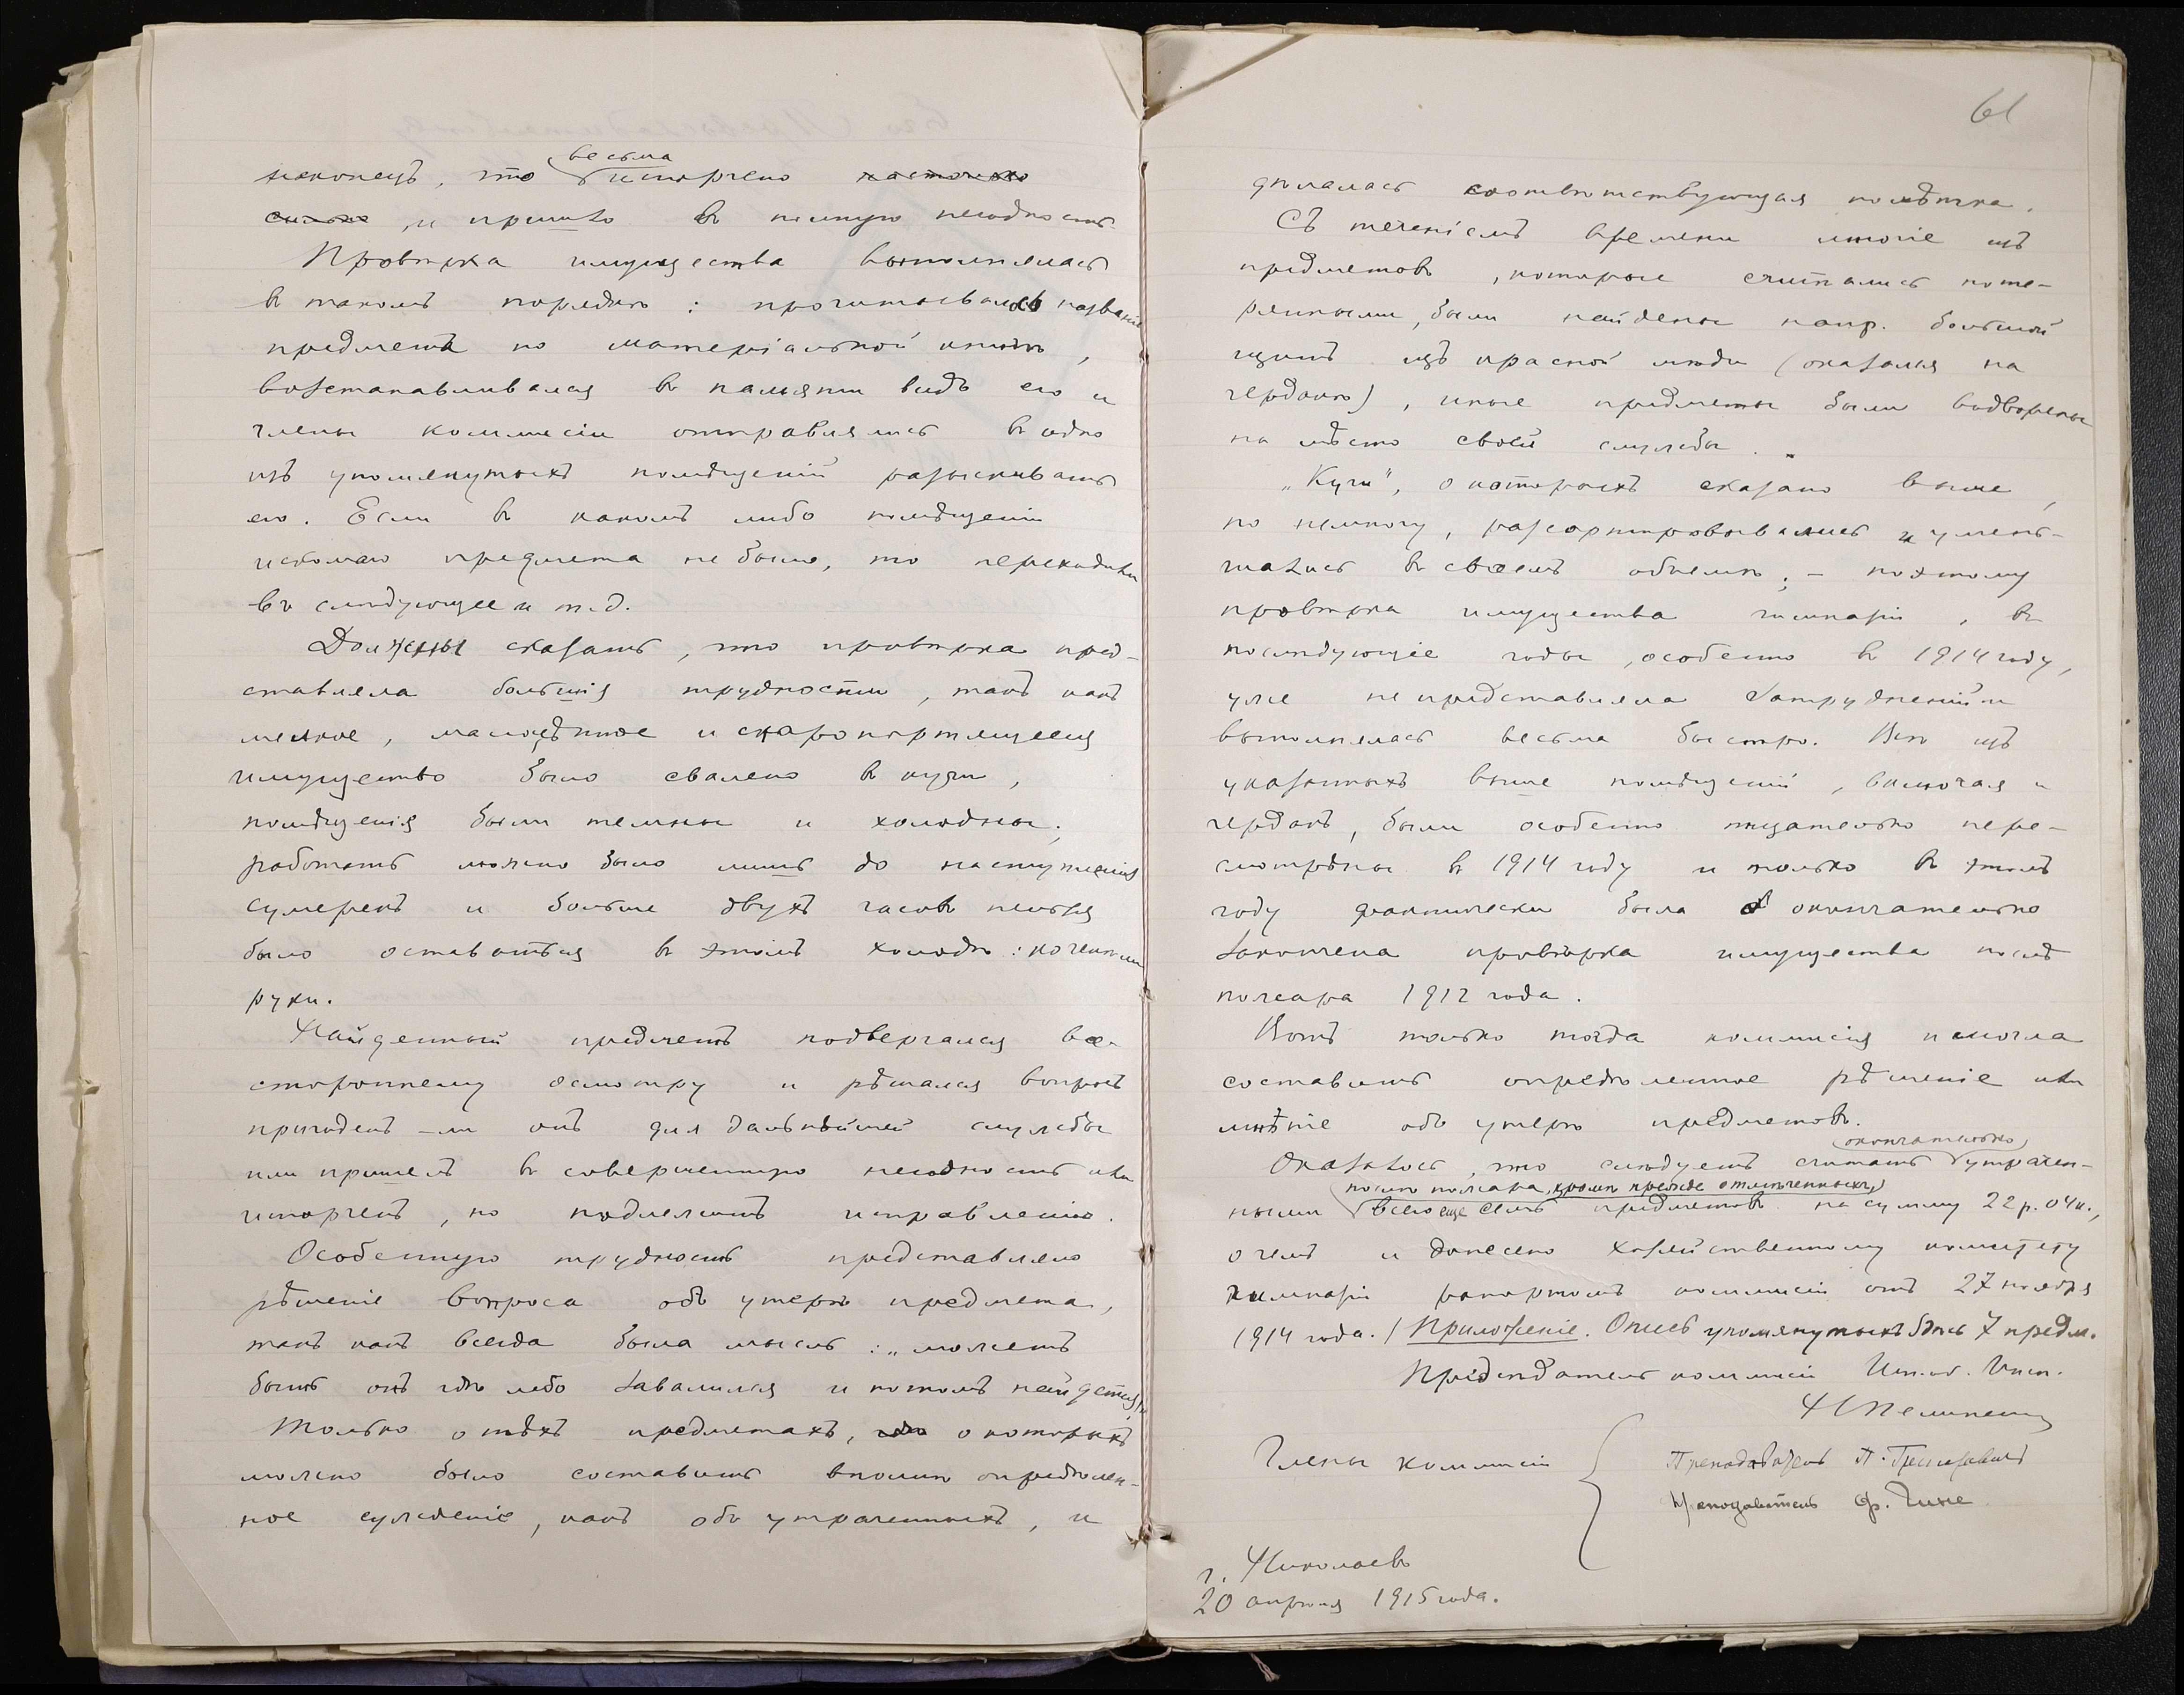 наконецъ, что весьма испорчено настолько
сильно, и пришло въ полную негодность.
Провѣрка имущества выполнялась
въ такомъ порядкѣ: прочитывалось названіе
предмета по матеріальной книгѣ,
возстанавливался въ памяти видъ его и
члены коммисіи отправлялись въ одно
изъ упомянутыхъ помѣщеній разыскивать
его. Если въ какомъ либо помѣщеніи
искомаго предмета не было, то переходили
въ слѣдующее и т.д.
Должны сказать, что провѣрка пред-
ставляла большія трудности, такъ какъ
мелкое, малоцѣнное и скоропортящееся
имущество было свалено въ кучи,
помѣщенія были темны и холодны;
работать можно было лишь до наступленія
сумерекъ и больше двухъ часовъ нельзя
было оставаться въ этомъ холодѣ: коченѣли
руки.
Найденный предметъ подвергался все-
стороннему осмотру и рѣшался вопросъ
пригоденъ-ли онъ для дальнѣйшей службы
или пришелъ въ совершенную негодность или
испорченъ, но подлежитъ исправленію.
Особенную трудность представляло
рѣшеніе вопроса объ утерѣ предмета,
такъ какъ всегда была мысль: „можетъ
быть онъ гдѣ либо завалился и потомъ найдется".
Только о тѣхъ предметахъ, о которыхъ
можно было составить вполнѣ опредѣлен-
ное сужденіе, какъ объ утраченныхъ, и
61
дѣлалась соотвѣтствующая помѣтка.
Съ теченіемъ времени многіе изъ
предметовъ, которые считались поте-
рянными, были найдены напр. большой
щитъ изъ красной мѣди (оказался на
чердакѣ), иные предметы были водворены
на мѣсто своей службы.
„Кучи", о которыхъ сказано выше,
по немногу, разсортировывались и умень-
шались въ своемъ объемѣ; - поэтому
провѣрка имущества гимназіи, въ
послѣдующіе годы, особенно въ 1914 году,
уже не представляла затрудненій и
выполнялась весьма быстро. Всѣ изъ
указанныхъ выше помѣщеній, включая и
чердакъ, были особенно тщательно пере-
смотрѣны въ 1914 году и только въ этомъ
году фактически была окончательно
закончена провѣрка имущества послѣ
пожара 1912 года.
Вотъ только тогда коммисія и могла
составить опредѣленное рѣшеніе или
мнѣніе объ утерѣ предметовъ.
Оказалось, что слѣдуетъ считать окончательно утрачен-
ными послѣ пожара, кромѣ прежде отмѣченныхъ, всего еще семь предметовъ на сумму 22 р. 04 к.,
о чемъ и донесено хозяйственному комитету
гимназіи рапортомъ коммисіи отъ 27 ноября
1914 года. / Приложеніе. Опись упомянутыхъ здѣсь 7 предм.
Предсѣдатель коммисіи Исп. об. Инсп.
Члены коммисіи
Преподаватель П.
Преподаватель Ф.
г. Николаевъ
20 апрѣля 1915 года.